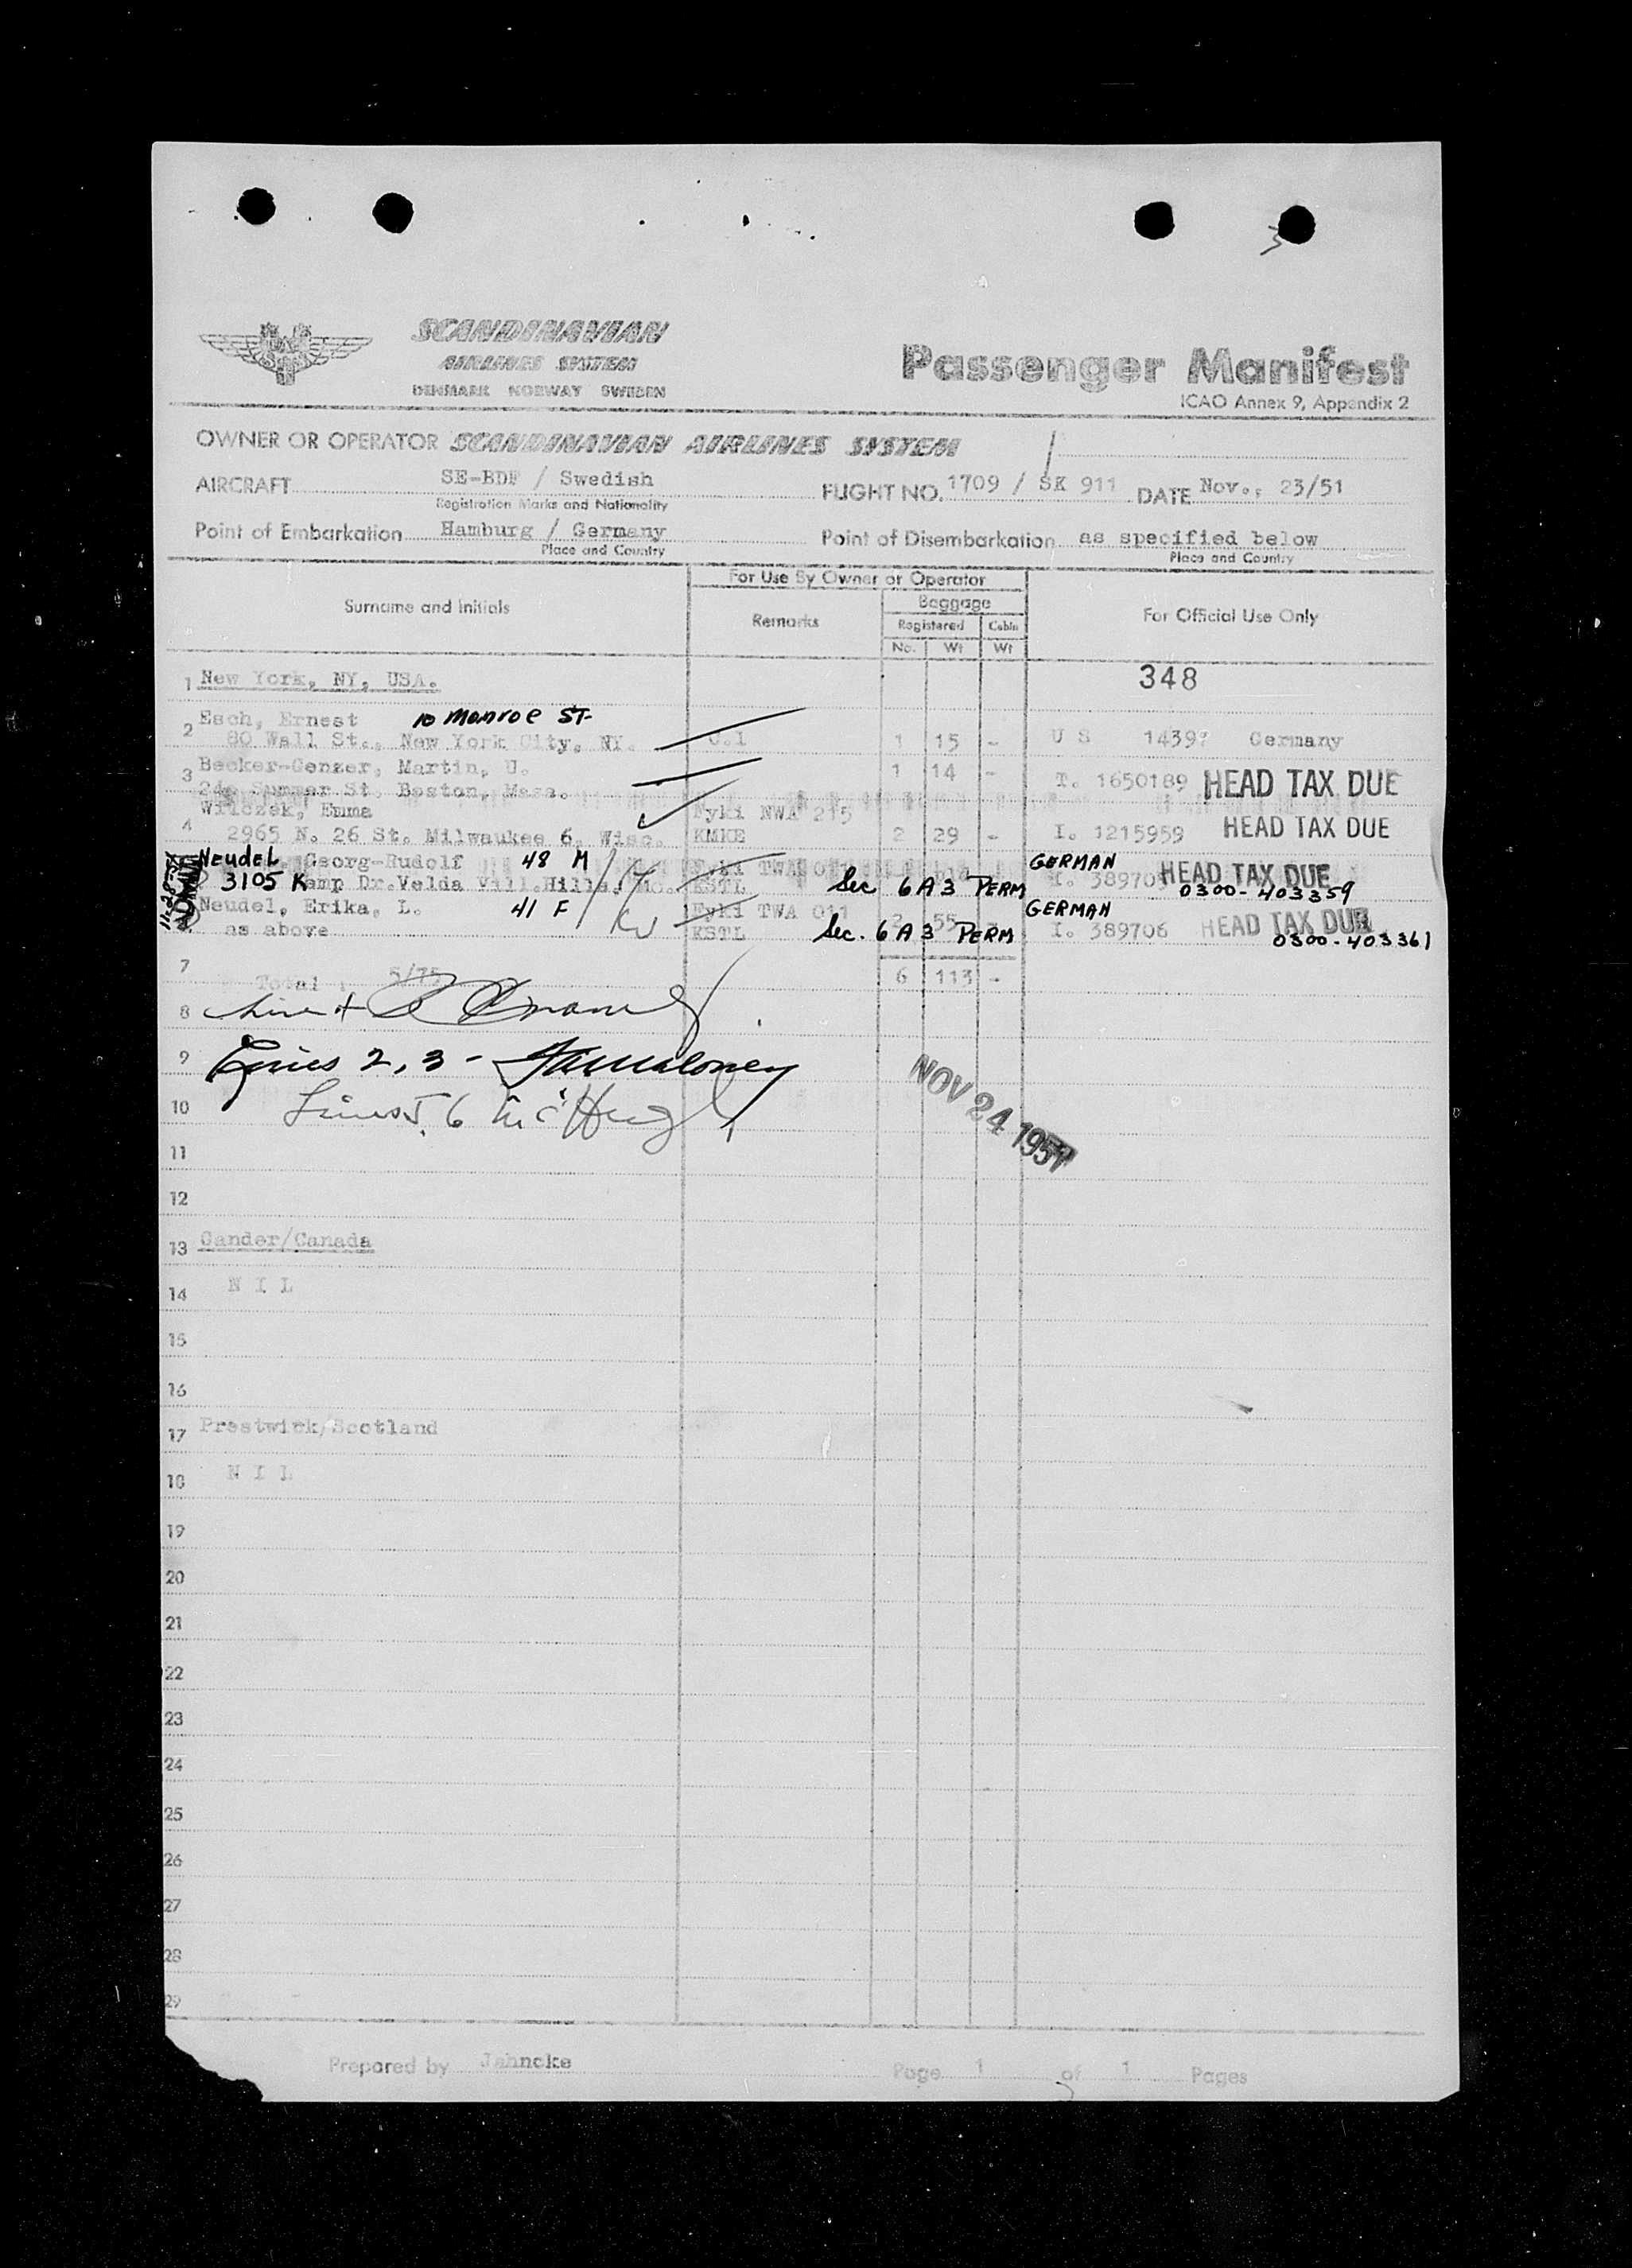 SCANDINAVIAN
AIRLINES SYSTEM
DENMARK NORWAY SWEDEN
Passenger Manifest
ICAO Annex 9, Appendix 2
OWNER OR OPERATOR SCANDINAVIAN AIRLINES SYSTEM
AIRCRAFT SE-BDF / Swedish
Registration Marks and Nationality
FLIGHT NO. 1709 / SK 911 DATE Nov., 23/51
Point of Embarkation Hamburg / Germany
Place and Country
Point of Disembarkation as specified below
Place and Country
Surname and Initials
For Use By Owner or Operator
Remarks
Baggage
Registered Cabin
No. Wt Wt
For Official Use Only
1 New York, NY, USA. 348
Esch, Ernest 10 Monroe ST-
2 80 Wall St., New York City, NY. 1 15 - U S Germany
3 Becker-Genzer, Martin, U. 1 14 - I. 1650189 HEAD TAX DUE
St. Boston, Mass.
Wilczek, Emma Fyki NWA 215
4 2965 N. 26 St. Milwaukee 6, Wisc. KMKE 2 29 - I. 1215959 HEAD TAX DUE
Neudel Georg-Rudolf 48 M Fyki TWA GERMAN HEAD TAX DUE
3105 Kamp Dr. Velda Vill. Hills, Mo. KSTL Sec 6A3 PERM 0300-403359
Neudel, Erika, L. 41 F Fyki TWA 011 2 55 - GERMAN
as above KSTL Sec. 6A3 PERM I. 389706 HEAD TAX DUE
0300-403361
11-28-51
7 Total : 5/75 6 113 -
8
9 Lines 2, 3 - Maloney
10 Lines 5, 6 McHugh
NOV 24 1951
11
12
13 Gander/Canada
14 N I L
15
16
17 Prestwick/Scotland
18 N I L
19
20
21
22
23
24
25
26
27
28
29
Prepared by Jahncke
Page 1 of 1 Pages